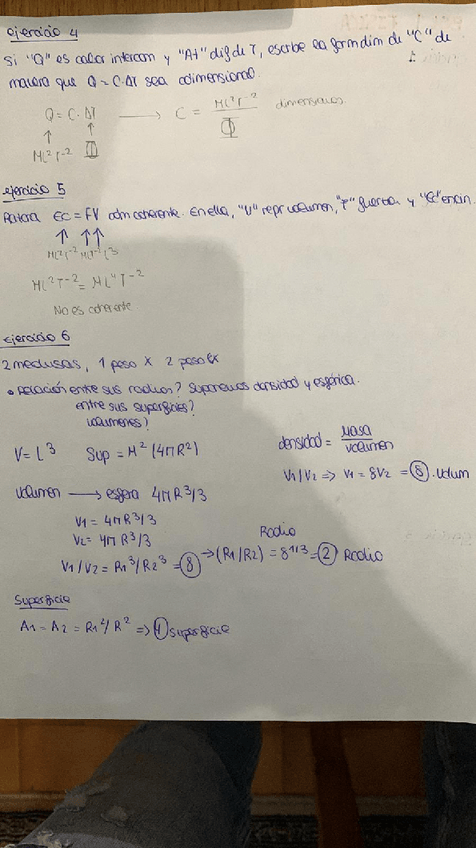 ejercicio 4
Si "Q" es calor intercam y "Δt" dif de T, escribe la form dim de "C" de
manera que Q = C·ΔT sea adimensional
Q = C·ΔT → C = ML²T⁻² / Φ dimensiones
ML²T⁻² Φ
ejercicio 5
EC = FV adm coherente. En ella, "V" repr volumen, "F" fuerza y "Ec" encin.
ML²T⁻² MLT⁻² L³
ML²T⁻² = ML⁴T⁻²
No es coherente
ejercicio 6
2 medusas, 1 peso X 2 peso 8x
• Relación entre sus radios? Suponemos densidad y esférica.
entre sus superficies?
volumenes?
V = L³ Sup = M² (4πR²) densidad = Masa / volumen
V1/V2 => V1 = 8V2 = 8. Volum
volumen → esfera 4πR³/3
V1 = 4πR³/3
V2 = 4πR³/3
Radio
V1/V2 = R1³/R2³ = 8 → (R1/R2) = 8^1/3 = 2 Radio
Superficie
A1 = A2 = R1²/R² => 4 superficie